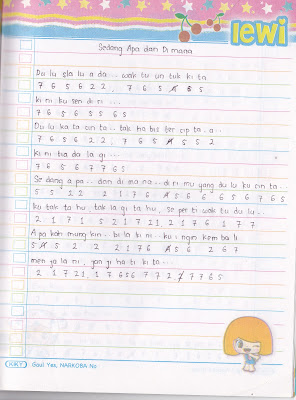 lewi
Sedang Apa dan Di mana
Du lu sla lu a da... wak tu un tuk ki ta
7 6 5 6 2 2. 7 6 5 4 5 5
ki ni ku sen di ri ...
7 6 5 6 5 5 6 5
Du lu ka ta cin ta.. tak ha bis ter cip ta.. a..
7 6 5 6 2 2. 7 6 5 4 5 5 2
Ki ni tia da la gi ...
7 6 5 6 7 7 6 5
Se dang a pa... dan di ma na.. di ri mu yang du lu ku cin ta...
5 5 2 2 2 1 7 6 4 5 6 6 6 5 6 7 6 5
ku tak ta hu, tak la gi ta hu, se per ti wak tu du lu..
2 1 7 1 5 2 1 7 2 1, 2 1 7 6 1 7 7
A pa kah mung kin.. bi la ti ni.. ku i ngin kem ba li
5 4 5 2 2 2 1 7 6 4 5 6 2 6 7
men ja la ni, jan ji ha ti ki ta ...
2 1 7 2 1, 1 7 6 5 6 7 7 2 2 7 7 6 5
Gaul Yes, NARKOBA No